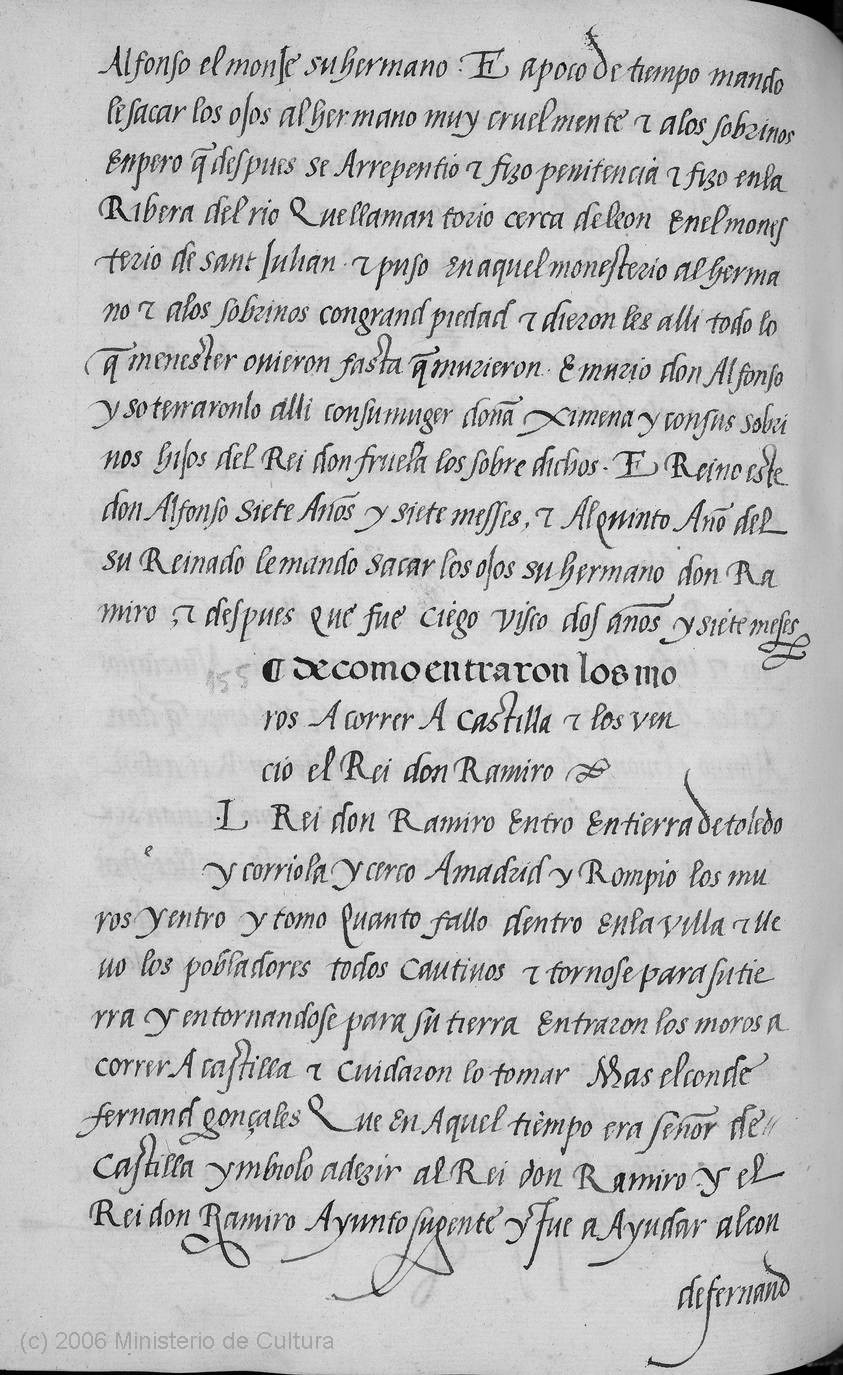 Alfonso el monje su hermano · E apoco de tiempo mando
le sacar los ojos al hermano muy cruelmente τ alos sobrinos
Enpero q̃ despues se Arrepentio τ fizo penitencia τ fizo enla
Ribera del rio Que llaman torio cerca de leon Enel mones
terio de sant Julian · τ puso en aquel monesterio al herma
no τ alos sobrinos con grand piedad τ dieron les alli todo lo
q̃ menester ovieron fasta q̃ murieron · E murio don Alfonso
y soterraronlo alli con su muger doña Ximena y con sus sobri
nos hijos del Rei don fruela los sobre dichos · E Reino este
don Alfonso siete Años y siete messes, τ Al quinto Año del
su Reinado le mando sacar los ojos su hermano don Ra
miro, τ despues que fue ciego visco dos años y siete meses
155
¶ de como entraron los mo
ros A correr A Castilla τ los ven
cio el Rei don Ramiro
e
·L Rei don Ramiro Entro En tierra de toledo
y corriola y cerco Amadrid y Rompio los mu
ros y entro y tomo Quanto fallo dentro Enla villa τ lle
vo los pobladores todos cautivos τ tornose para su tie
rra y en tornandose para su tierra Entraron los moros a
correr A castilla τ Cuidaron lo tomar Mas el conde
fernand gonçales Que En Aquel tiempo era señor de
Castilla ymbiolo adezir al Rei don Ramiro y el
Rei don Ramiro Ayunto su gente y fue a Ayudar al con
de fernand
(c) 2006 Ministerio de Cultura